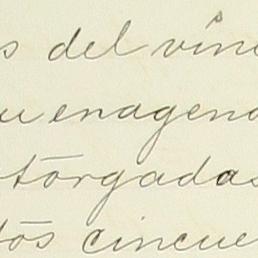 s del vínc
u enagena
otorgadas
tos cincue